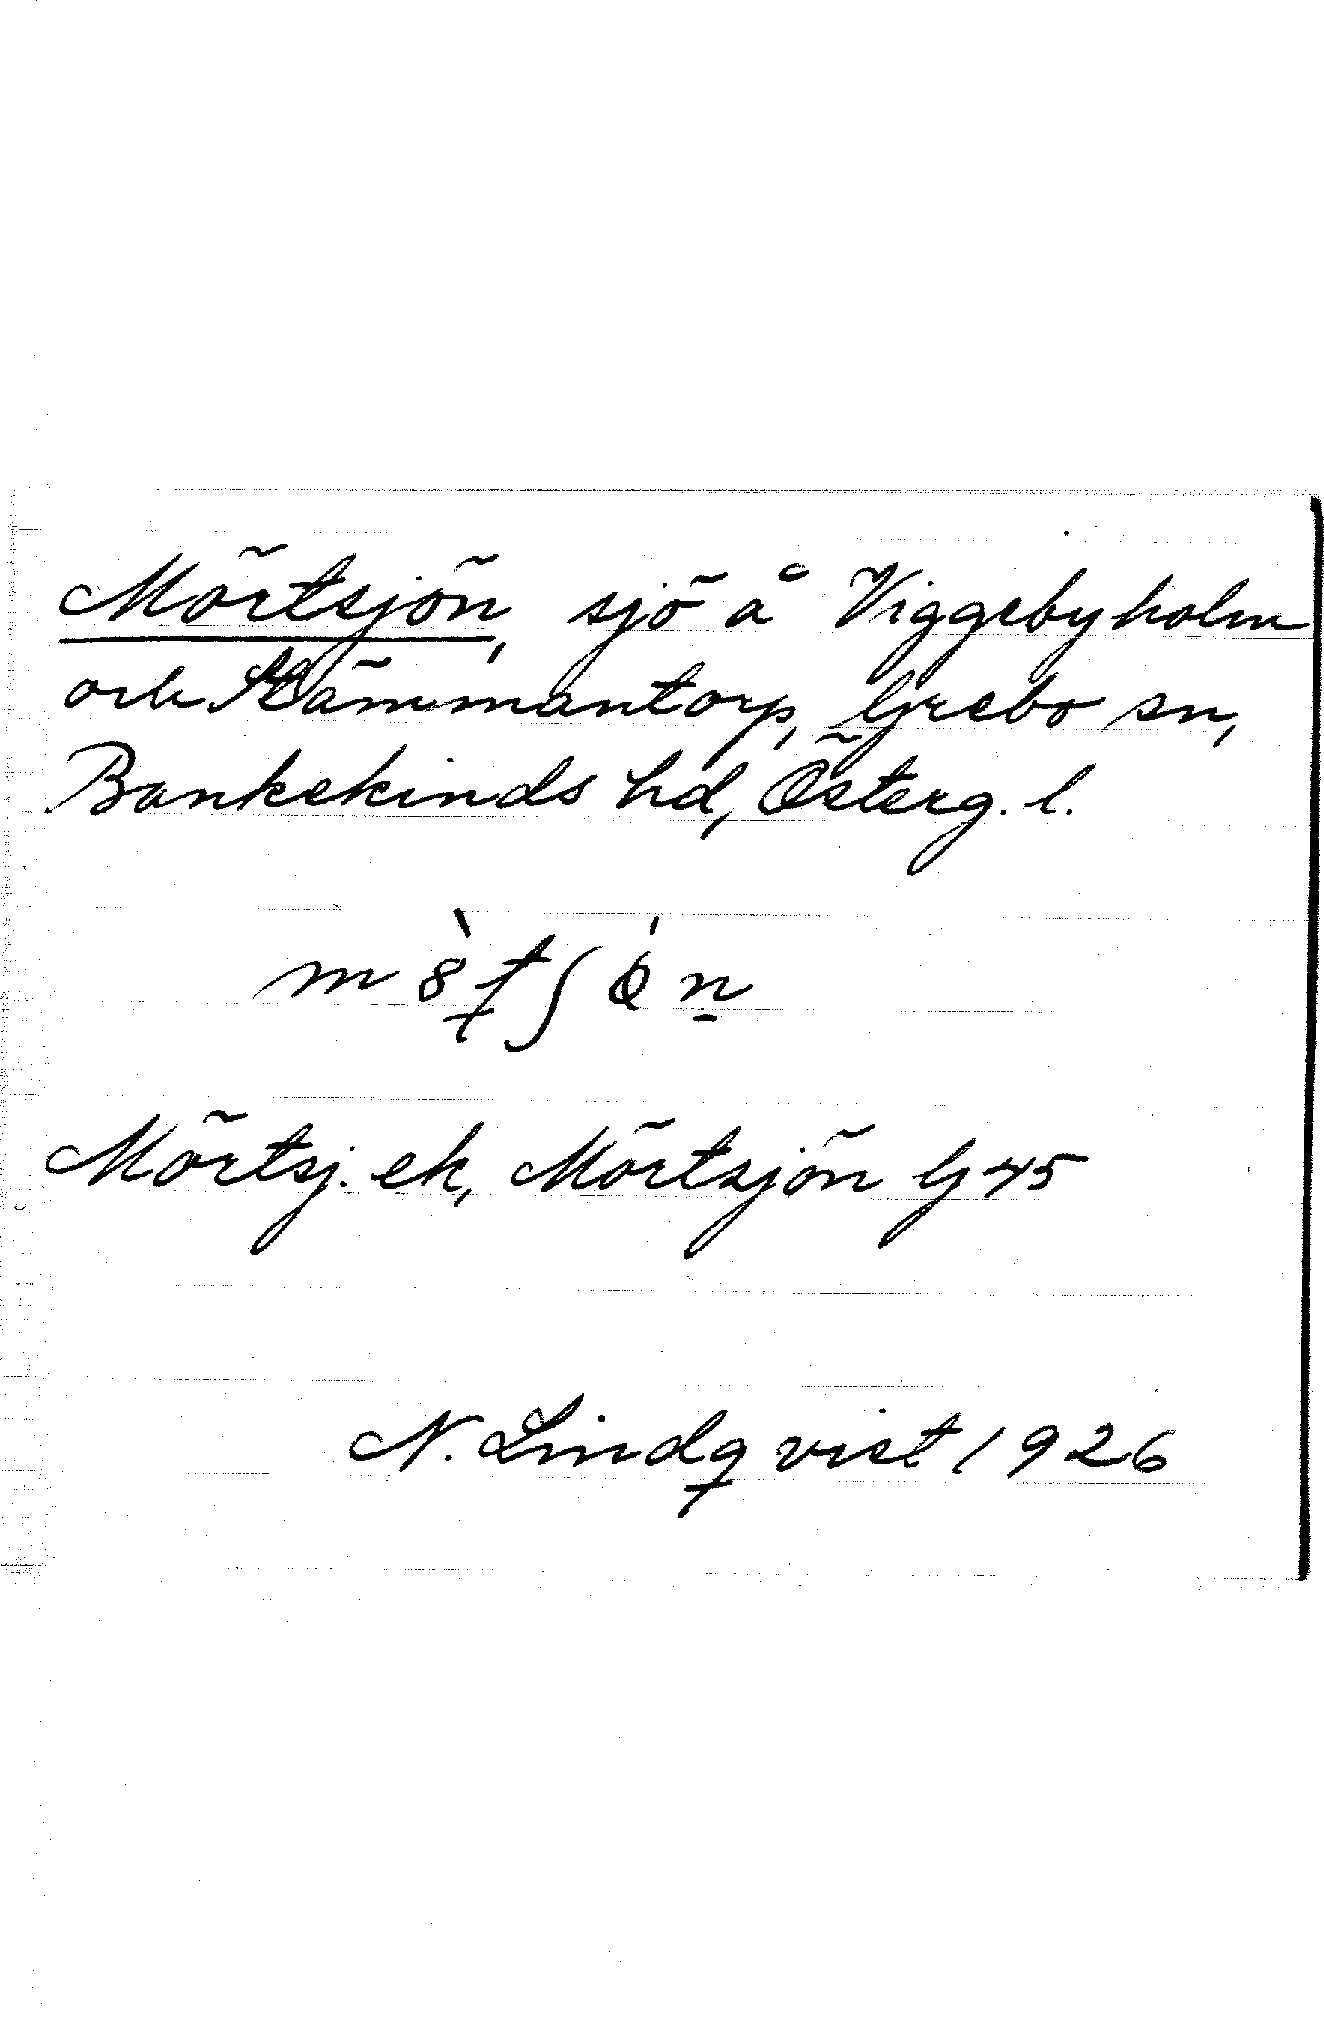 Mörtsjön, sjö å Viggebyholm
och Stämmantorp, Grebo sn,
Bankekinds hd, Österg. l.
Mörtsj. ek, Mörtsjön G 45
N. Lindqvist 1926